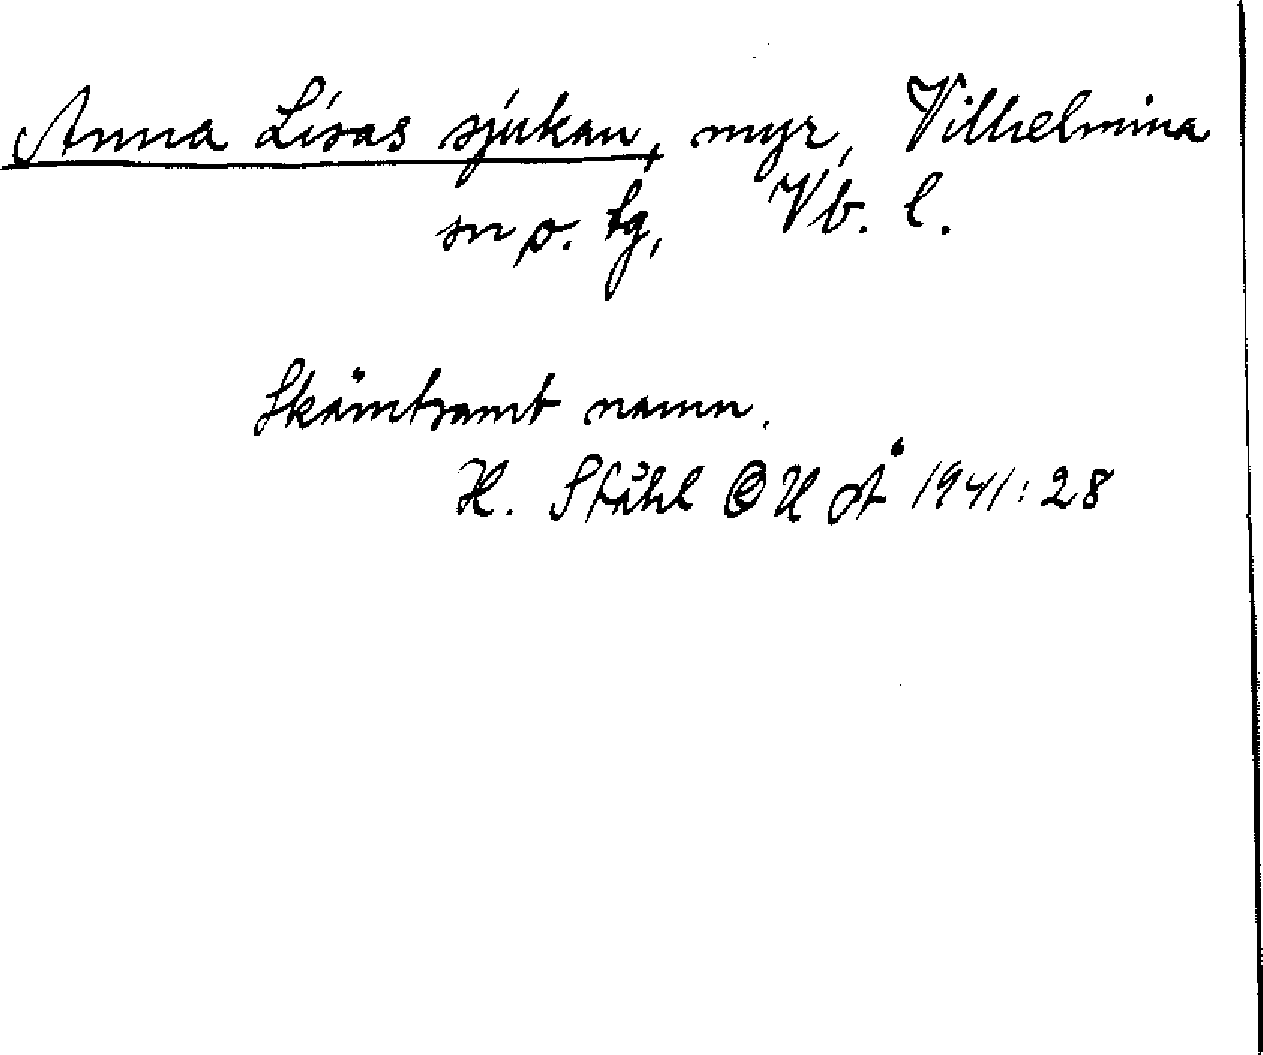 Anna Lisas sjukan, myr, Vilhelmina
sn o. tg, Vb. l.
Skämtsamt namn.
H. Ståhl OUÅ 1941:28